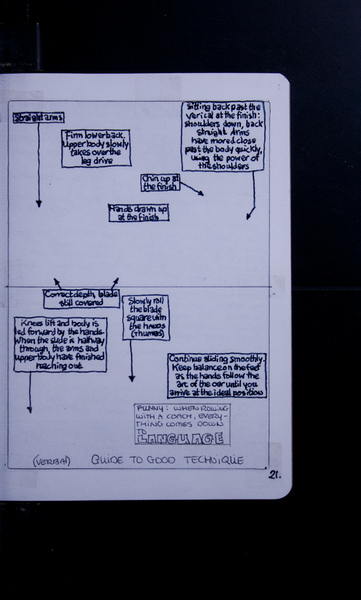 Straight arms
Firm lower back,
upper body slowly
takes over the
leg drive
Sitting back past the
verical at the finish:
shoulders down, back
straight. Arms
have moved close
past the body quickly,
using the power of
the shoulders
Chin up at
the finish
Hands drawn up
at the finish
Correct depth, blade
still covered
Slowly roll
the blade
square with
the hands
(thumbs)
Knees lift and body is
led forward by the hands.
When the slide is halfway
through, the arms and
upper body have finished
reaching out.
Continue sliding smoothly.
Keep balance on the feet
as the hands follow the
arc of the oar until you
arrive at the ideal position
FUNNY: WHEN ROWING
WITH A COACH, EVERY-
THING COMES DOWN
TO
LANGUAGE
(VERBAL) GUIDE TO GOOD TECHNIQUE
21.